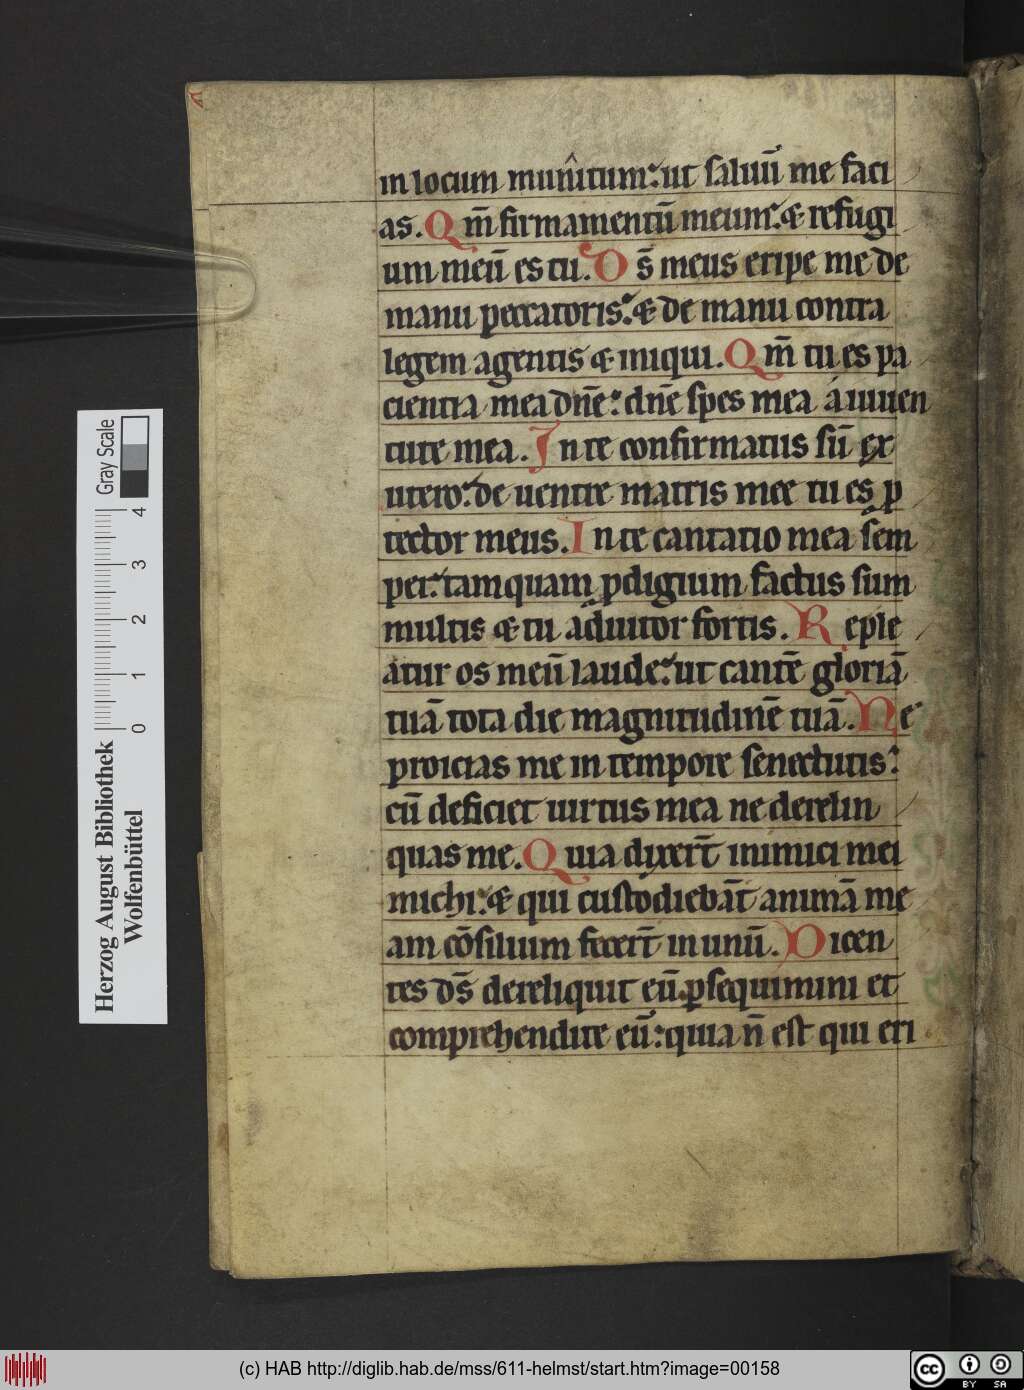 in locum munitum: ut saluū me faci
as. Qm̄ firmamentū meum: & refugi
um meū es tu. Ds̄ meus eripe me de
manu peccatoris: & de manu contra
legem agentis & iniqui. Qm̄ tu es pa
cientia mea dn̄e: dn̄e spes mea a iuuen
tute mea. In te confirmatus sū ex
utero: de uentre matris mee tu es p
tector meus. In te cantatio mea sem
per: tamquam pdigium factus sum
multis & tu adiutor fortis. Reple
atur os meū laude: ut cantē gloriā
tuā tota die magnitudinē tuā. Ne
proicias me in tempore senectutis:
cū deficiet uirtus mea ne derelin
quas me. Quia dixert̄ inimici mei
michi: & qui custodiebāt animā me
am cōsilium fecert̄ in unū. Dicen
tes ds̄ dereliquit eū psequimini et
comprehendite eū: quia n̄ est qui eri
Herzog August Bibliothek
Wolfenbüttel
0 1 2 3 4
Gray Scale
(c) HAB http://diglib.hab.de/mss/611-helmst/start.htm?image=00158
cc BY SA